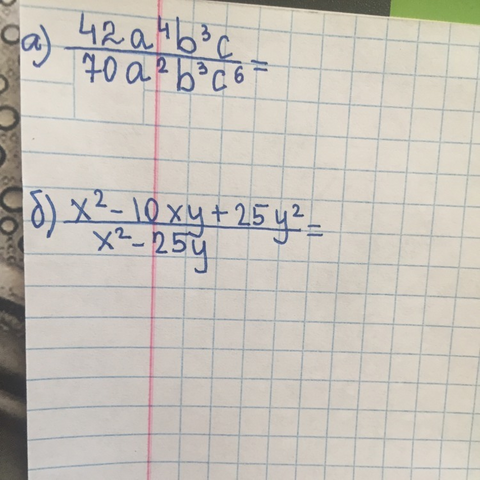 а) 42a⁴b³c
70a²b³c⁶ =
б) x² - 10xy + 25y²
x² - 25y =